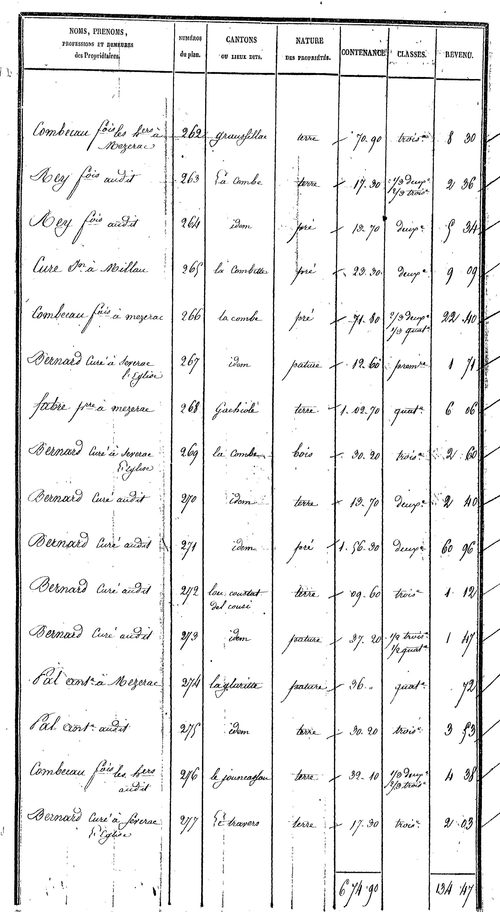 NOMS, PRENOMS, PROFESSIONS ET DEMEURES des Propriétaires. | NUMÉROS du plan. | CANTONS OU LIEUX DITS. | NATURE DES PROPRIÉTÉS. | CONTENANCE. | CLASSES. | REVENU.
Combecau fois les hers à Mezerac 262 terre 70.90 trois.e 8 30
Rey fois audit 263 La Combe terre 17.30 1/3 deux.e 2/3 trois.e 2 36
Rey fois audit 264 idem pré 13.70 deux.e 5 34
Cure à Millau 265 la Combette pré 23.30 deux.e 9 09
Combecau fois à mezerac 266 la combe pré 71.80 2/3 deux.e 1/3 quat.e 22 40
Bernard Curé à Severac l'Eglise 267 idem pature 12.60 prem.re 1 71
fabre pre à mezerac 268 Gachiolé terre 1.02.70 quat.e 6 06
Bernard Curé à Severac l'Eglise 269 la Combe bois 30.20 trois.e 2 60
Bernard Curé audit 270 idem terre 13.70 deux.e 2 40
Bernard Curé audit 271 idem pré 1.56.30 deux.e 60 96
Bernard Curé audit 272 lou coustat del cousi terre 09.60 trois.e 1 12
Bernard Curé audit 273 idem pature 37.20 1/2 trois.e 1/2 quat.e 1 47
Pal ant.e à Mezerac 274 pature 36.. quat.e 72
Pal ant.e audit 275 idem terre 30.20 trois.e 3 53
Combecau fois les hers audit 276 terre 32.10 1/3 deux.e 2/3 trois.e 4 38
Bernard Curé à Severac l'Eglise 277 Le travers terre 17.30 trois.e 2 03
6 74.90 134.47